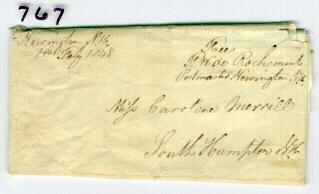 767
Newington N.H.
14th July 1848
Free
F W de Rochemont
Postmaster Newington N.H.
Miss Caroline Merrill
South Hampton N.H.